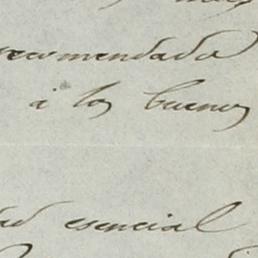 recomendada
á los buenos
dad esencial